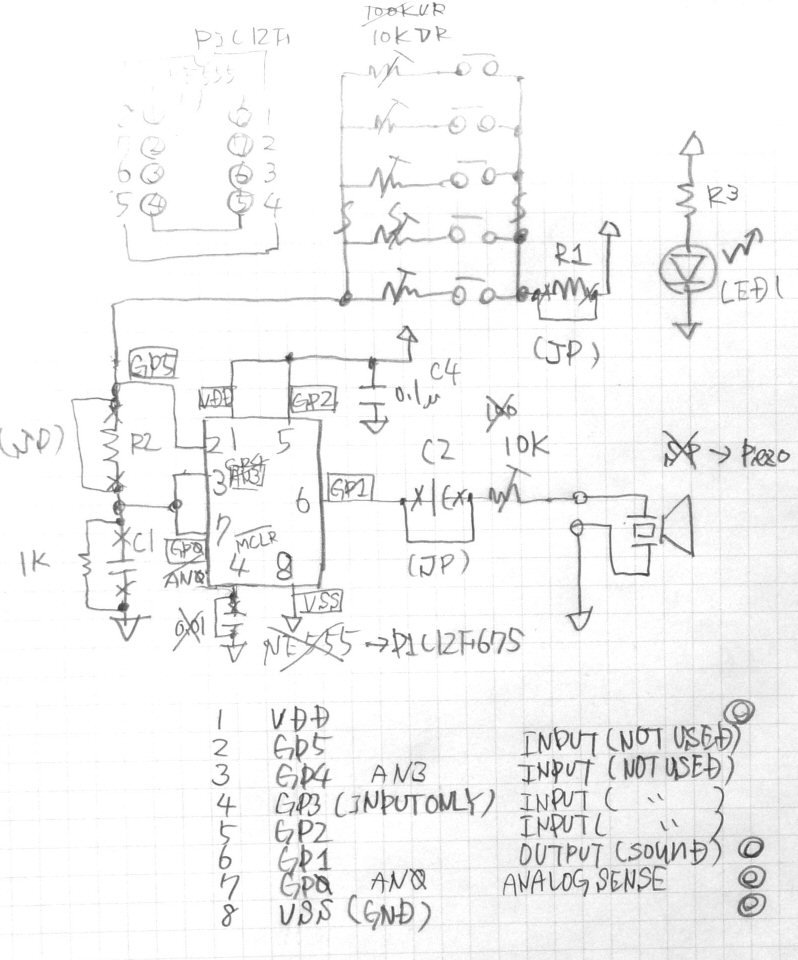 100KVR
10KVR
PIC12F
1
2
6 3 6 3
5 4 5 4
R1
(JP)
R3
LED1
GP5
VDD
GP2
C4
0.1μ
(JP)
R2
2 1 5
GP4
3 AN3
6
GP1
C2
100
10K
SP → PIEZO
7
MCLR
GP0
AN0
4 8
(JP)
1K
C1
0.01
VSS
NE555 → PIC12F675
1 VDD
2 GP5 INPUT (NOT USED)
3 GP4 AN3 INPUT (NOT USED)
4 GP3 (INPUT ONLY) INPUT ( 〃 )
5 GP2 INPUT ( 〃 )
6 GP1 OUTPUT (SOUND)
7 GP0 AN0 ANALOG SENSE
8 VSS (GND)